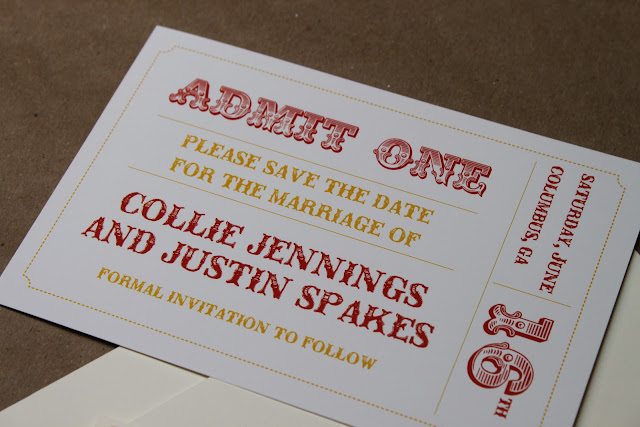 ADMIT ONE
PLEASE SAVE THE DATE
FOR THE MARRIAGE OF
COLLIE JENNINGS
AND JUSTIN SPAKES
FORMAL INVITATION TO FOLLOW
SATURDAY, JUNE
COLUMBUS, GA
16TH